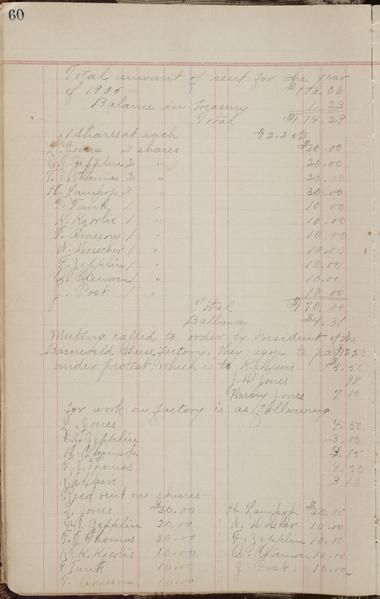 60
Total amount of rent for the year
of 1905 $173.06
Balance in Treasury 1.23
Total $174.29
17 shares at each
Jones 3 shares $30.00
Zepplin 2 " 20.00
Thomas 2 " 20.00
H. Lampop 3 " 30.00
F. Funk 1 " 10.00
K. Kjorlie 1 " 10.00
T. Arneson 1 " 10.00
1 " 10.00
F. Zepplin 1 " 10.00
1 " 10.00
J. Post 1 " 10.00
Total $170.00
Ballance $4.31
Meeting called to order by President of the
Barneveld Cheese Factory. They agree to pay 12.50
under protest which is to K.
J. H. Jones 98
Harvey Jones 7
for work on factory is as following
L. Jones 4.50
Zepplin 3.15
H. Lampop
T. J. Thomas 4.50
3 10
Fixed rent on shares
L. Jones $30.00 H. Lampop 30.00
Zepplin 20.00 10.00
T. J. Thomas 20.00 F. Zepplin 10.00
K. K. Kjorlie 10.00 10.00
F. Funk 10.00 J. Post 10.00
T. Arneson 10.00